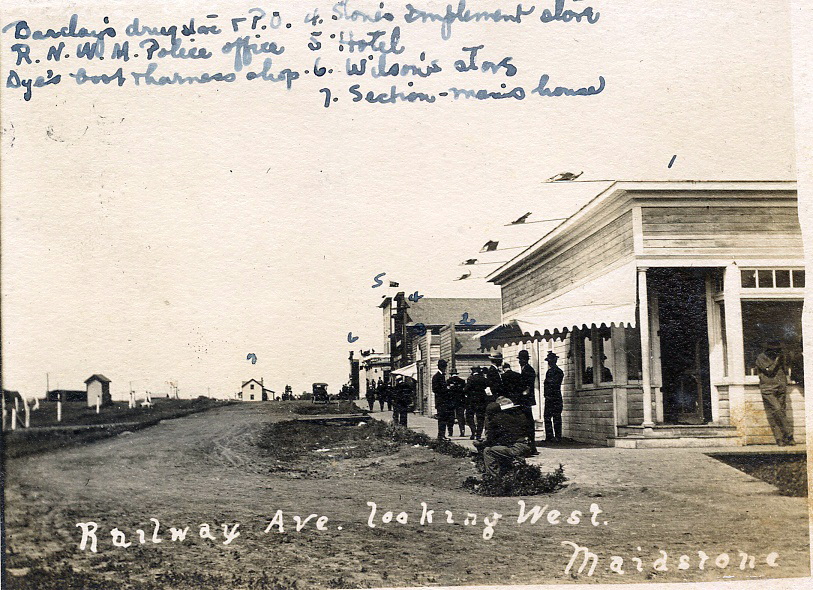 Barclay's drugstore & P.O. 4. Stone's Implement store
R. N. W. M. Police office 5 Hotel
Dye's boot & harness shop. 6. Wilson's store
7. Section-man's house
1
5
4
3
2
6
7
Railway Ave. looking West.
Maidstone